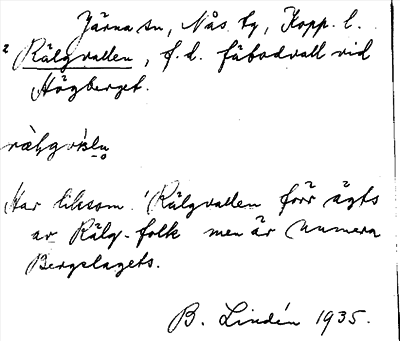 Järna sn, Nås tg, Kopp. l.
² Rälgvallen, f.d. fäbodvall vid
Högberget.
Har liksom ¹Rälgvallen förr ägts
av Rälg-folk men är numera
Bergslagets.
B. Lindén 1935.